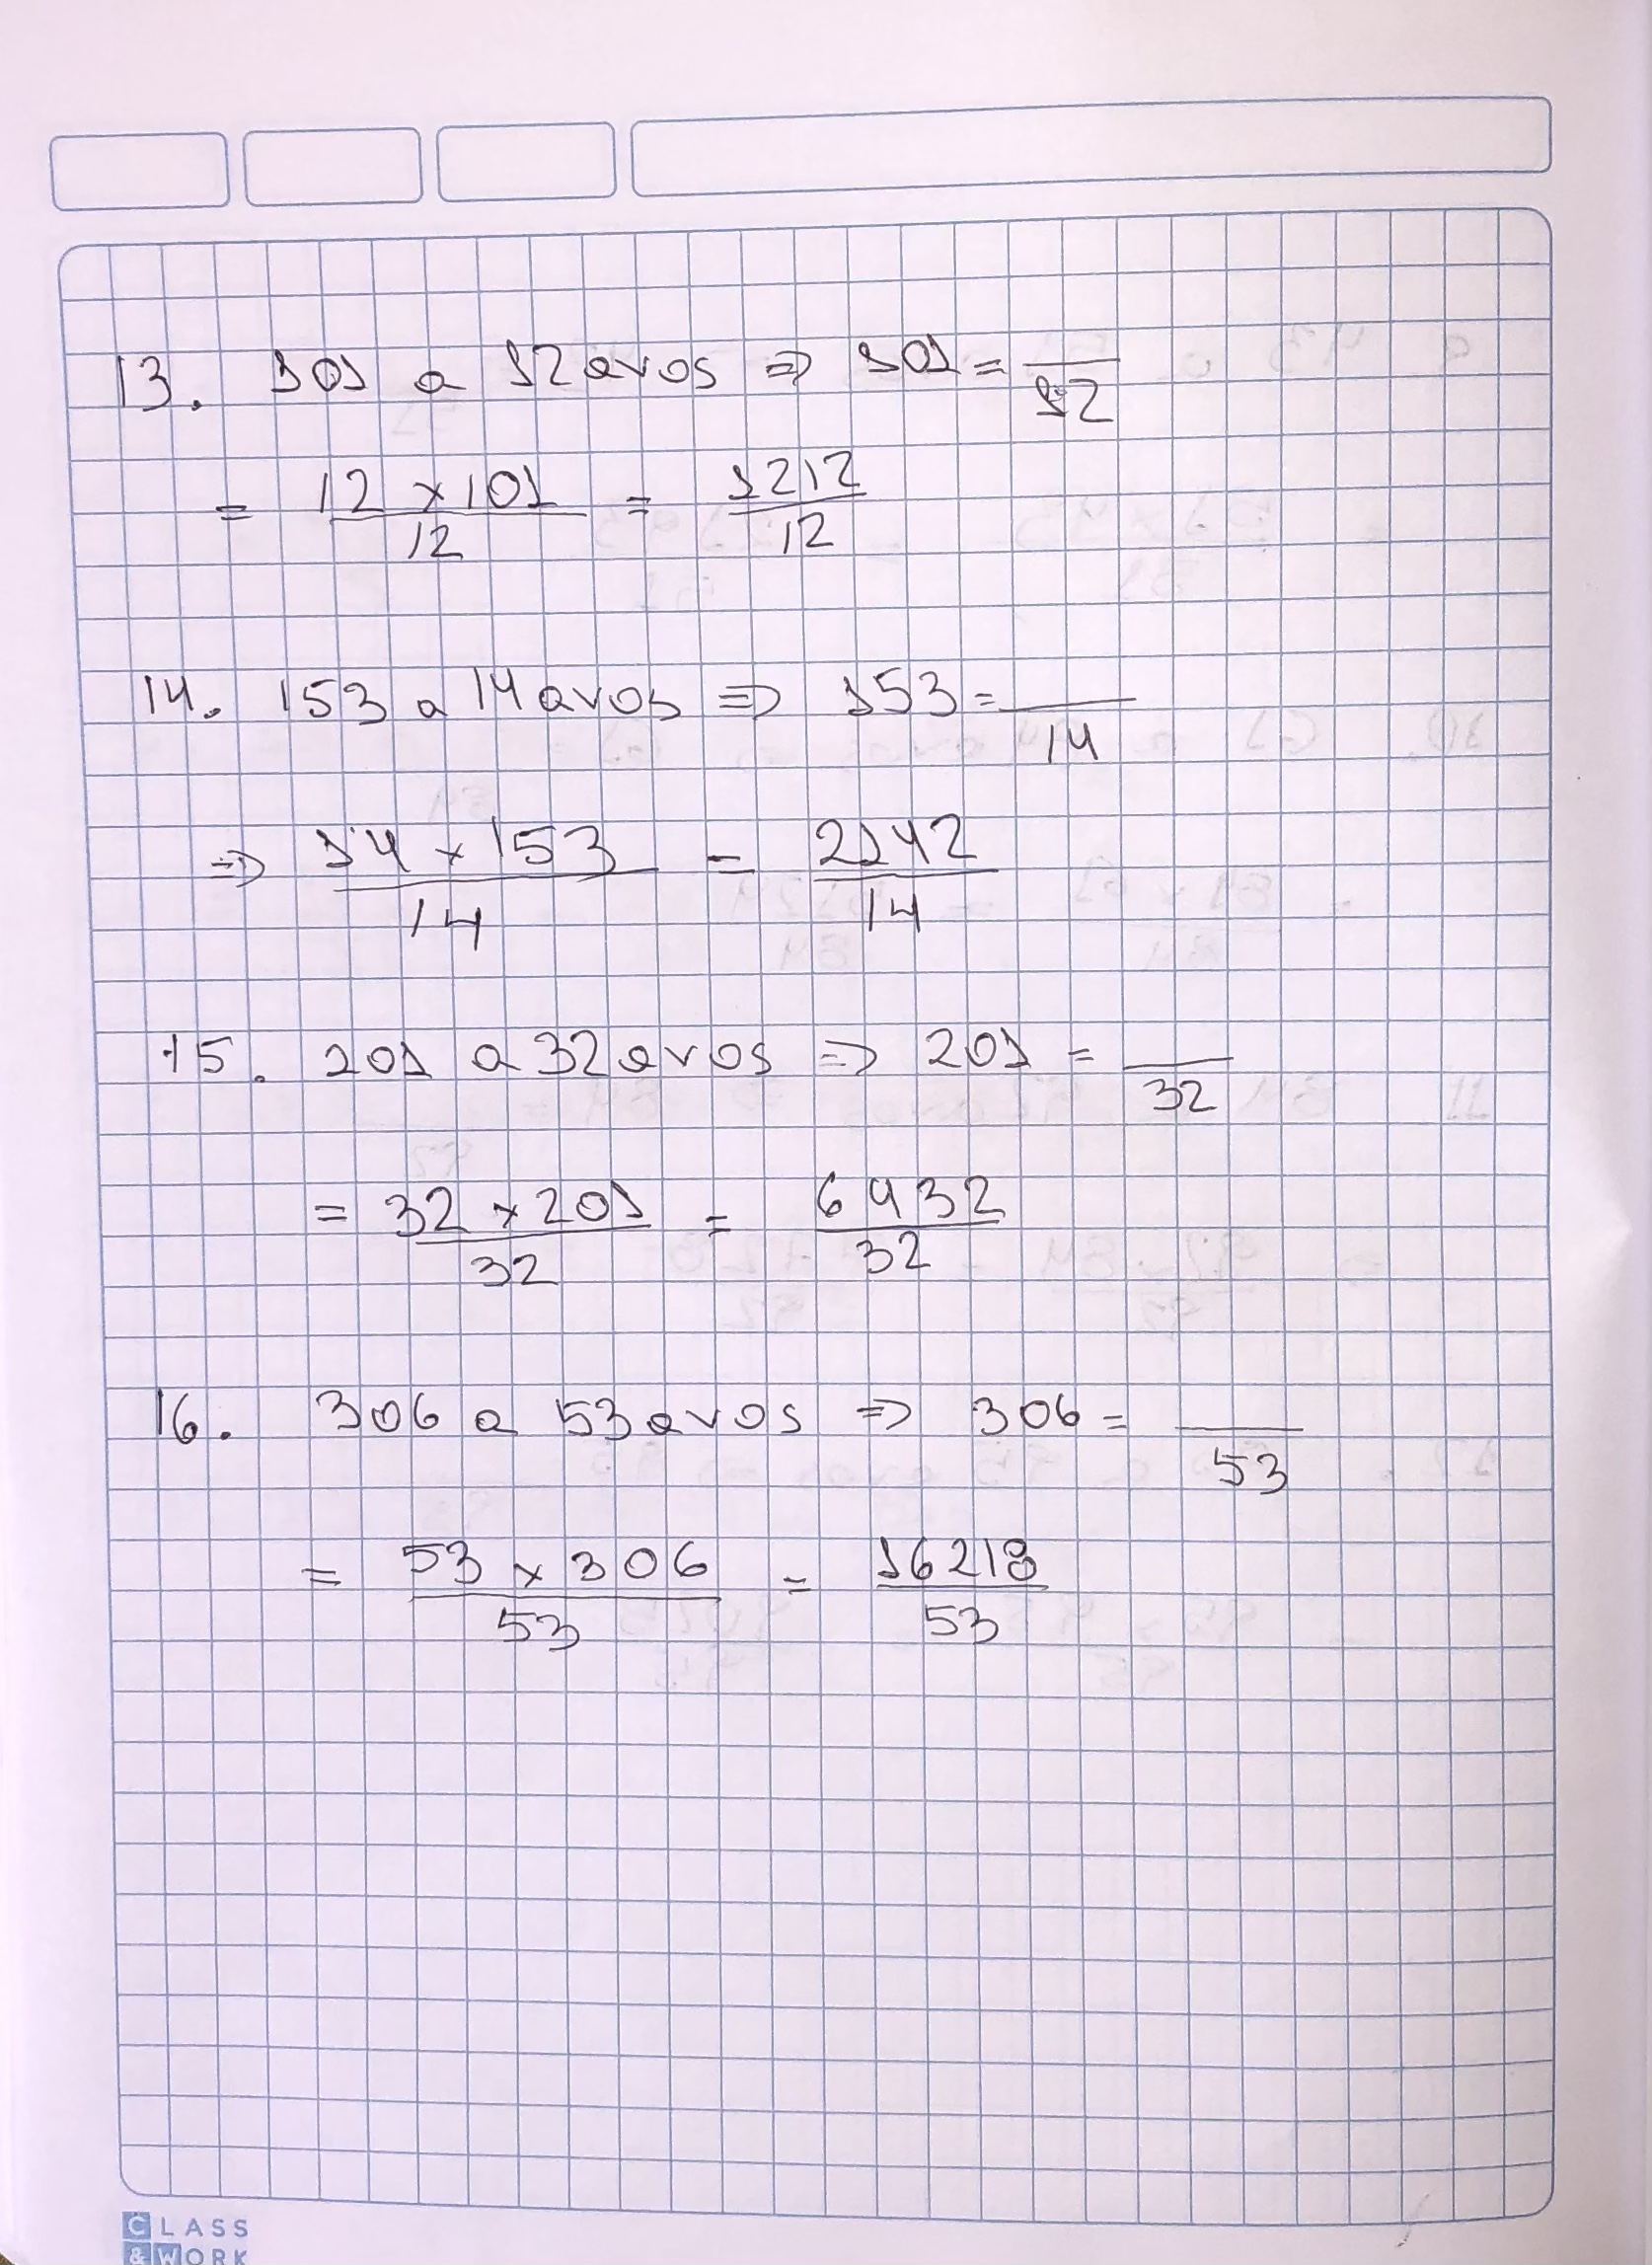 13. 101 a 12 avos ⇒ 101 = __/12
= 12 × 101/12 = 1212/12
14. 153 a 14 avos ⇒ 153 = __/14
⇒ 14 × 153/14 = 2142/14
15. 201 a 32 avos ⇒ 201 = __/32
= 32 × 201/32 = 6432/32
16. 306 a 53 avos ⇒ 306 = __/53
= 53 × 306/53 = 16218/53
CLASS
&WORK